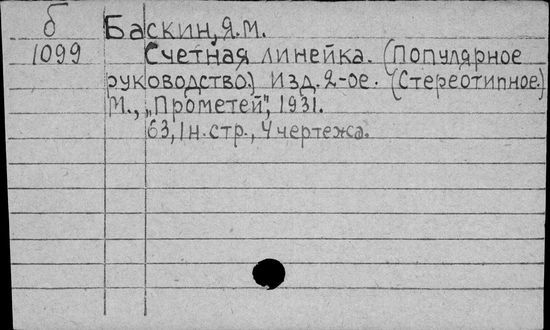 б Баскин, Я.М.
1099 Счетная линейка. (Популярное
руководство.) Изд. 2-ое. (Стереотипное.)
М., „Прометей", 1931.
63, 1 н. стр., 4 чертежа.